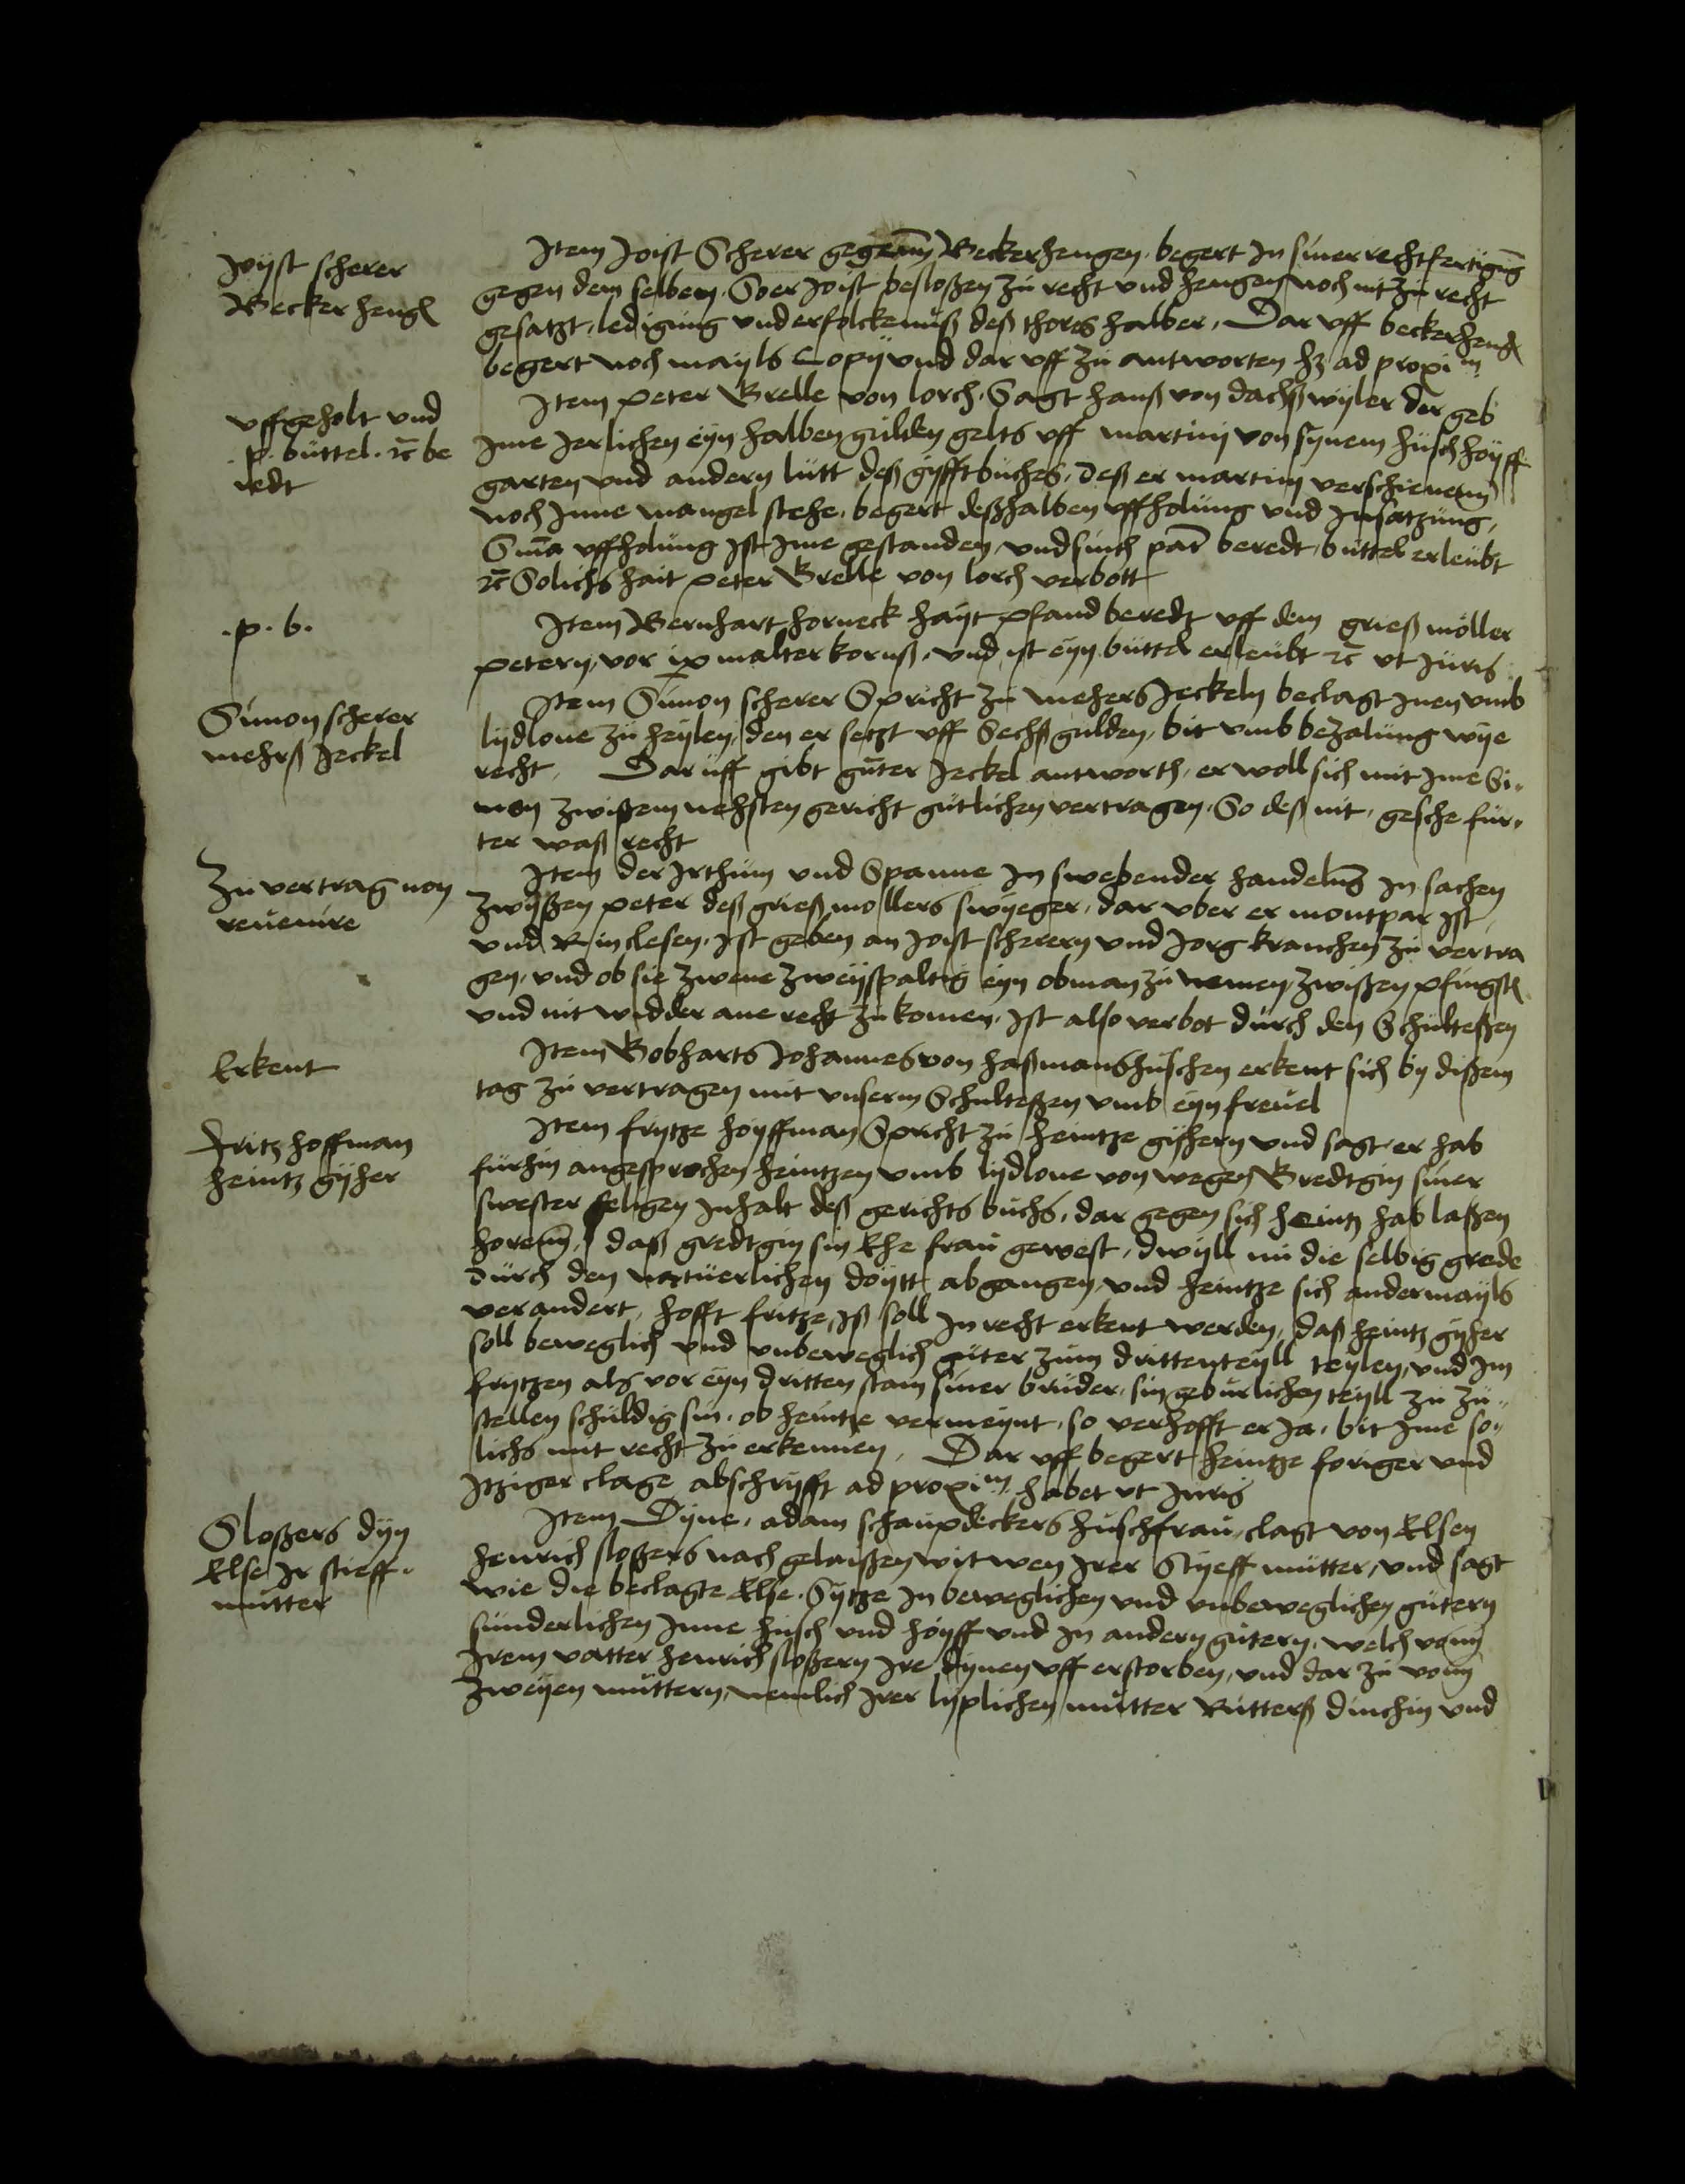 Joÿst scherer
Becker heng
Item Joist Scherer gegenn Beckerhengen, begert in siner rechtfertigung
gegen dem selben. So er Joist besloßen zu recht und hengen noch nit zu recht
gesatzt, ledigung und erfolckenuß deß thorns halber, Dar uff beckerheng
begert noch mayls Copÿ und dar uff zu antworten hz ad proxim
uffgeholt und
.p. büttel. rc be
redt
Item Peter Brelle von lorch. Sagt hanß von dachßwyler der geb
Ime Jerlichen eÿn halben gulden gelts uff martinj von sÿnem husch hoÿff
garten und andern lutt deß gÿfftbuches, deß er martinj verschienenn
noch Inne mangel stehe, begert deßhalben uffholung und Insatzung,
Sma uffholung Ist Ime gestanden und sinch par beredt, buttel erleubt
rc Solichs hait Peter Brelle von lorch verbott
.p. b.
Item Bernhart horneck haÿt Pfand beredt uff dem grieß moller
Petern, vor ix malter kornß, und ist eÿn büttel erleubt rc ut Juris
Simon scherer
mehrß Jeckel
Item Simon scherer Spricht zu mehers Jeckeln beclagt Inen umb
lÿdlone zu heÿlen, den er setzt uff Sechß gulden, bit umb bezalung wÿe
recht. Dar uff gibt guter Jeckel antworth, er woll sich mit Ime Si-
mon zwißem nehsten gericht gütlichen vertragen, So deß nit, gesche für-
ter waß recht
Zu vertrag non
revenire
Item der Irthum und Spanne In swebender handelung In sachen
zwÿßen Peter deß grieß mollers swÿeger, dar uber er montpar Ist
und Rinclesen, Ist geben an Joist scherern und Jorg kranchen zu vertra
gen, und ob sie zwene zweÿspaltig eÿn obman zu nemen, zwißen Pfingst
und nit widder ane recht zu komen, Ist also verbot durch den Schulteßen
Erkent
Item Bobharts Johannes von haßmanshuschen erkent sich bÿ dißem
tag zu vertragen mit unserm Schulteßen umb eÿn frevel
Fritz hoffman
heintz gÿher
Item fritze hoÿffman Spricht zu heintze gÿhern und sagt er hab
fürhin angesprochen heintzen umb lÿdlone von wegen Bredtgin siner
swester seligen Inhalt deß gerichts buchs, dar gegen sich heintz hab laßen
horenn, daß gredtgin sin Ehe frau gewest, dwÿll nu die selbig grede
durch den naturlichen doÿtt abgangen, und heintze sich andermaÿls
verandert, hofft fritze, Iß soll In recht erkent werden, daß heintz gÿher
soll beweglich und unbeweglich güter zum drittenteÿll teÿlen, und Im
fritzen als vor eÿn dritten stam siner bruder, sin gebürlichen teÿll zu zu-
stellen schuldig sin, ob heintze vermeÿnt, so verhofft er Ja, bit Ime so-
lichs mit recht zu erkennen, Dar uff begert heintze foriger und
Itziger clage abschrÿfft ad proxim habet ut Juris
Sloßers dÿn
Else Ir stieff-
mutter
Item Dÿne, adam schaupdeckers huschfrau, clagt von Elsen
henrich sloßers nach gelaißen witwen Irer Stÿeff mutter, und sagt
wie die beclagte Else, Sÿtze In beweglichen und unbeweglichen gütern
sunderlichen Inne husch und hoÿff und In andern gütern, welch vonn
Irem vatter henrich sloßern Ire dÿnen uff erstorben, und dar zu vonn
zweÿen müttern, nemlich Irer lÿplichen mutter Rutterß dinchin und